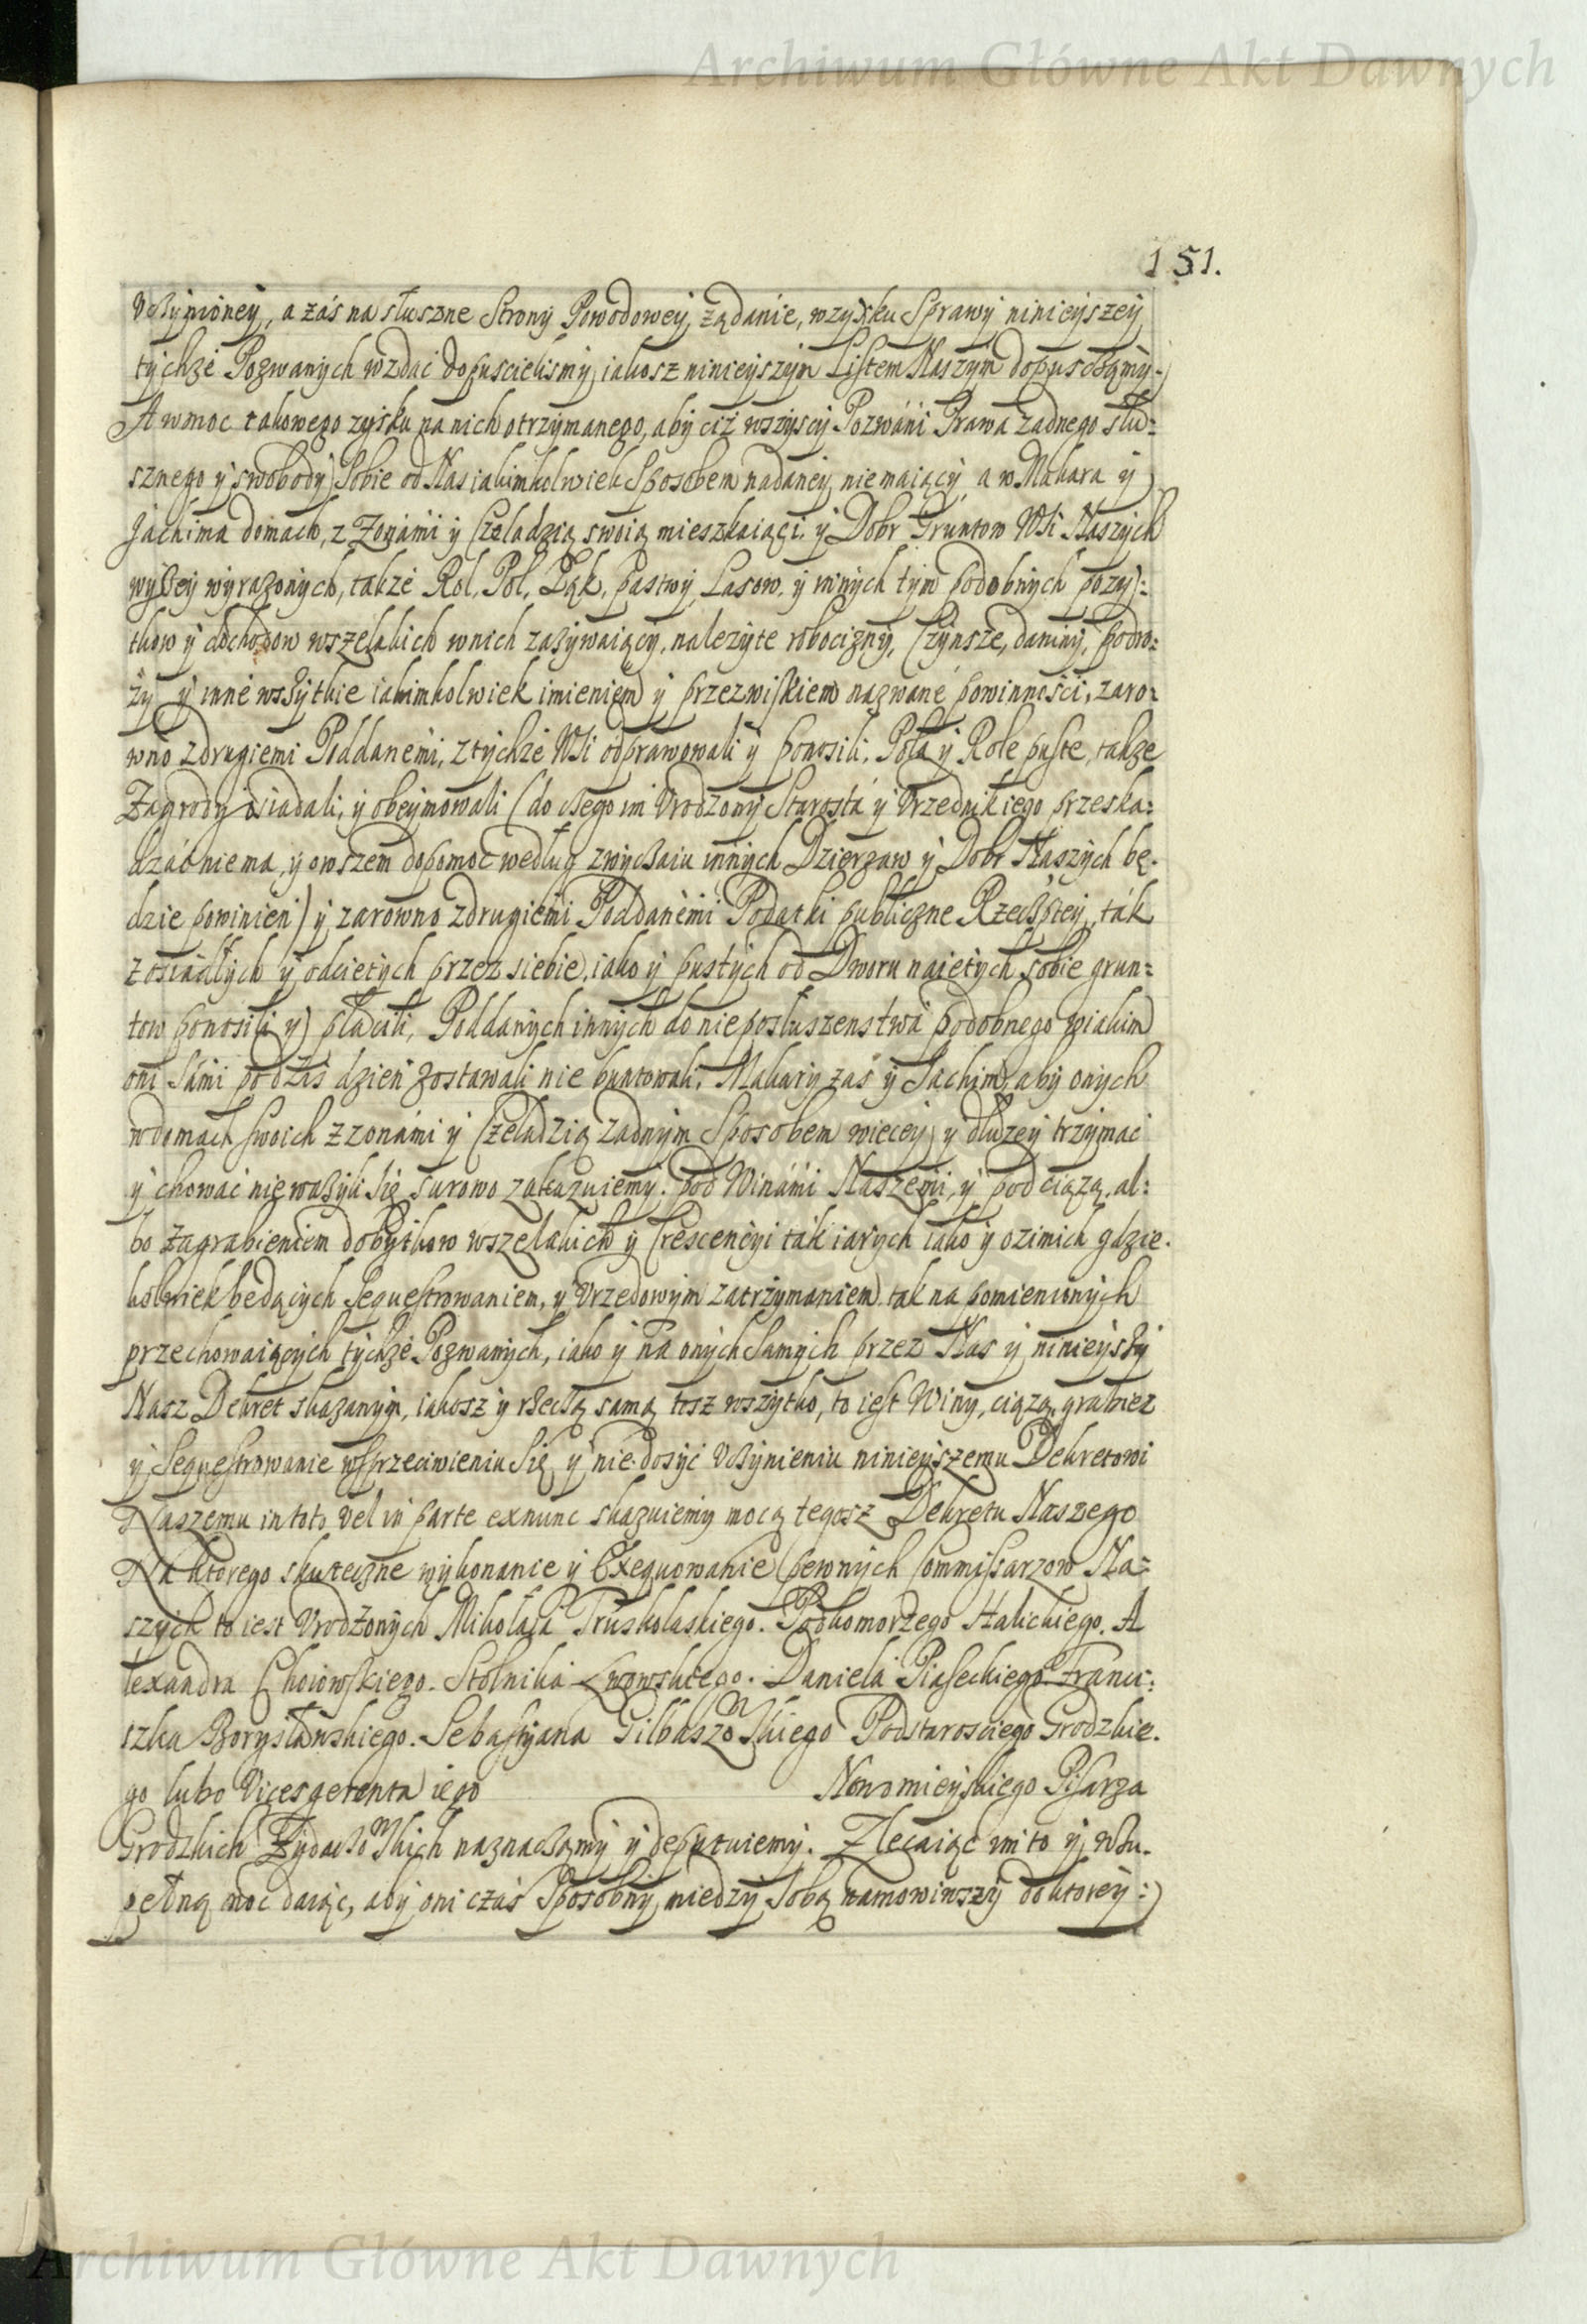 Archiwum Główne Akt Dawnych
151.
Vczynioney, a zaś na słuszne Strony Powodowey, żądanie, wzysku Sprawy ninieyszey
tychże Pozwanych wzdać dopuscielismy, iakosz ninieyszym Listem Naszym dopusczamy.
A wmoc takowego zysku na nich otrzymanego, aby ciż wszyscy Pozwáni Prawa żadnego słu:
sznego y swobody Sobie od Nas iakimkolwiek Sposobem nadaney niemaiący a w Makara y
Jachima domach, z Zonámi y Czeladzią swoią mieszkaiąci, y Dobr Gruntow Wsi Naszych
wyszey wyrażonych, także Rol, Pol, Łąk, pastwy, Lasow, y innych tym podobnych pozy:
tkow y dochodow wszelakich wnich zażywaiący, należyte robocizny, Czynsze, daniny, podro:
ży y inne wszytkie iakimkolwiek imieniem y przezwiskiem nazwane powinności, zaro:
wno zdrugiemi Poddanemi, ztychże Wsi odprawowali y ponosili, Pola y Role puste, także
Zagrody osiadali, y obeymowali (do czego im Vrodzony Starosta y Vrzednik iego przeska:
dzać niema, y owszem dopomoc według zwyczaiu innych Dzierzaw y Dobr Naszych bę.
dzie powinien) y zarowno zdrugiemi Poddanemi Podatki publiczne Rzeczptey, ták
z osiadłych y odcietych przez siebie, iako y pustych od Dworu naietych sobie grun:
tow ponosili y płacili, Poddanych innych do nieposłuszenstwa podobnego wiakim
oni Sami podziś dzień zostawali nie buntowali, Makary zaś y Jachim, aby onych
wdomach swoich z zonámi y Czeladzią żadnym Sposobem wiecey y dłużey trzymać
y chować nieważyli się surowo zakazuiemy. pod Winámi Naszemi, y pod ciążą, al:
bo zagrabieniem dobytkow wszelakich y Crescencyi ták iarych iako y ozimich gdzie.
kolwiek bedących Sequestrowaniem, y Vrzedowym zatrzymaniem tak na pomienionych
przechowaiących tychże Pozwanych, iako y na onych Samych przez Nas y ninieyszy
Nasz Dekret skazanym, iakosz y rzeczą samą tosz wszytko, to iest Winy, ciążą, grabież
y Sequestrowanie wsprzeciwieniu Się y niedosyć Vczynieniu ninieyszemu Dekretowi
Naszemu in toto vel in parte exnunc skazuiemy mocą tegosz Dekretu Naszego
Na ktorego skuteczne wykonanie y Exequowanie pewnych Commissarzow Na:
szych to iest Vrodzonych Mikołaia Truskolaskiego. Podkomorzego Halickiego. A
lexandra Choiowskiego. Stolnika Lwowskiego. Daniela Piaseckiego. Franci:
szka Borysławskiego. Sebastyana Gilbaszowskiego Podstarosciego Grodzkie.
go lubo Vicesgerenta iego Nowomieyskiego Pisarza
Grodzkich Żydaczowskich naznaczamy y deputuiemy. Zlecaiąc im to y wzu.
pełną moc daiąc, aby oni czas Sposobny miedzy Sobą namowiwszy do ktorey:
Archiwum Główne Akt Dawnych